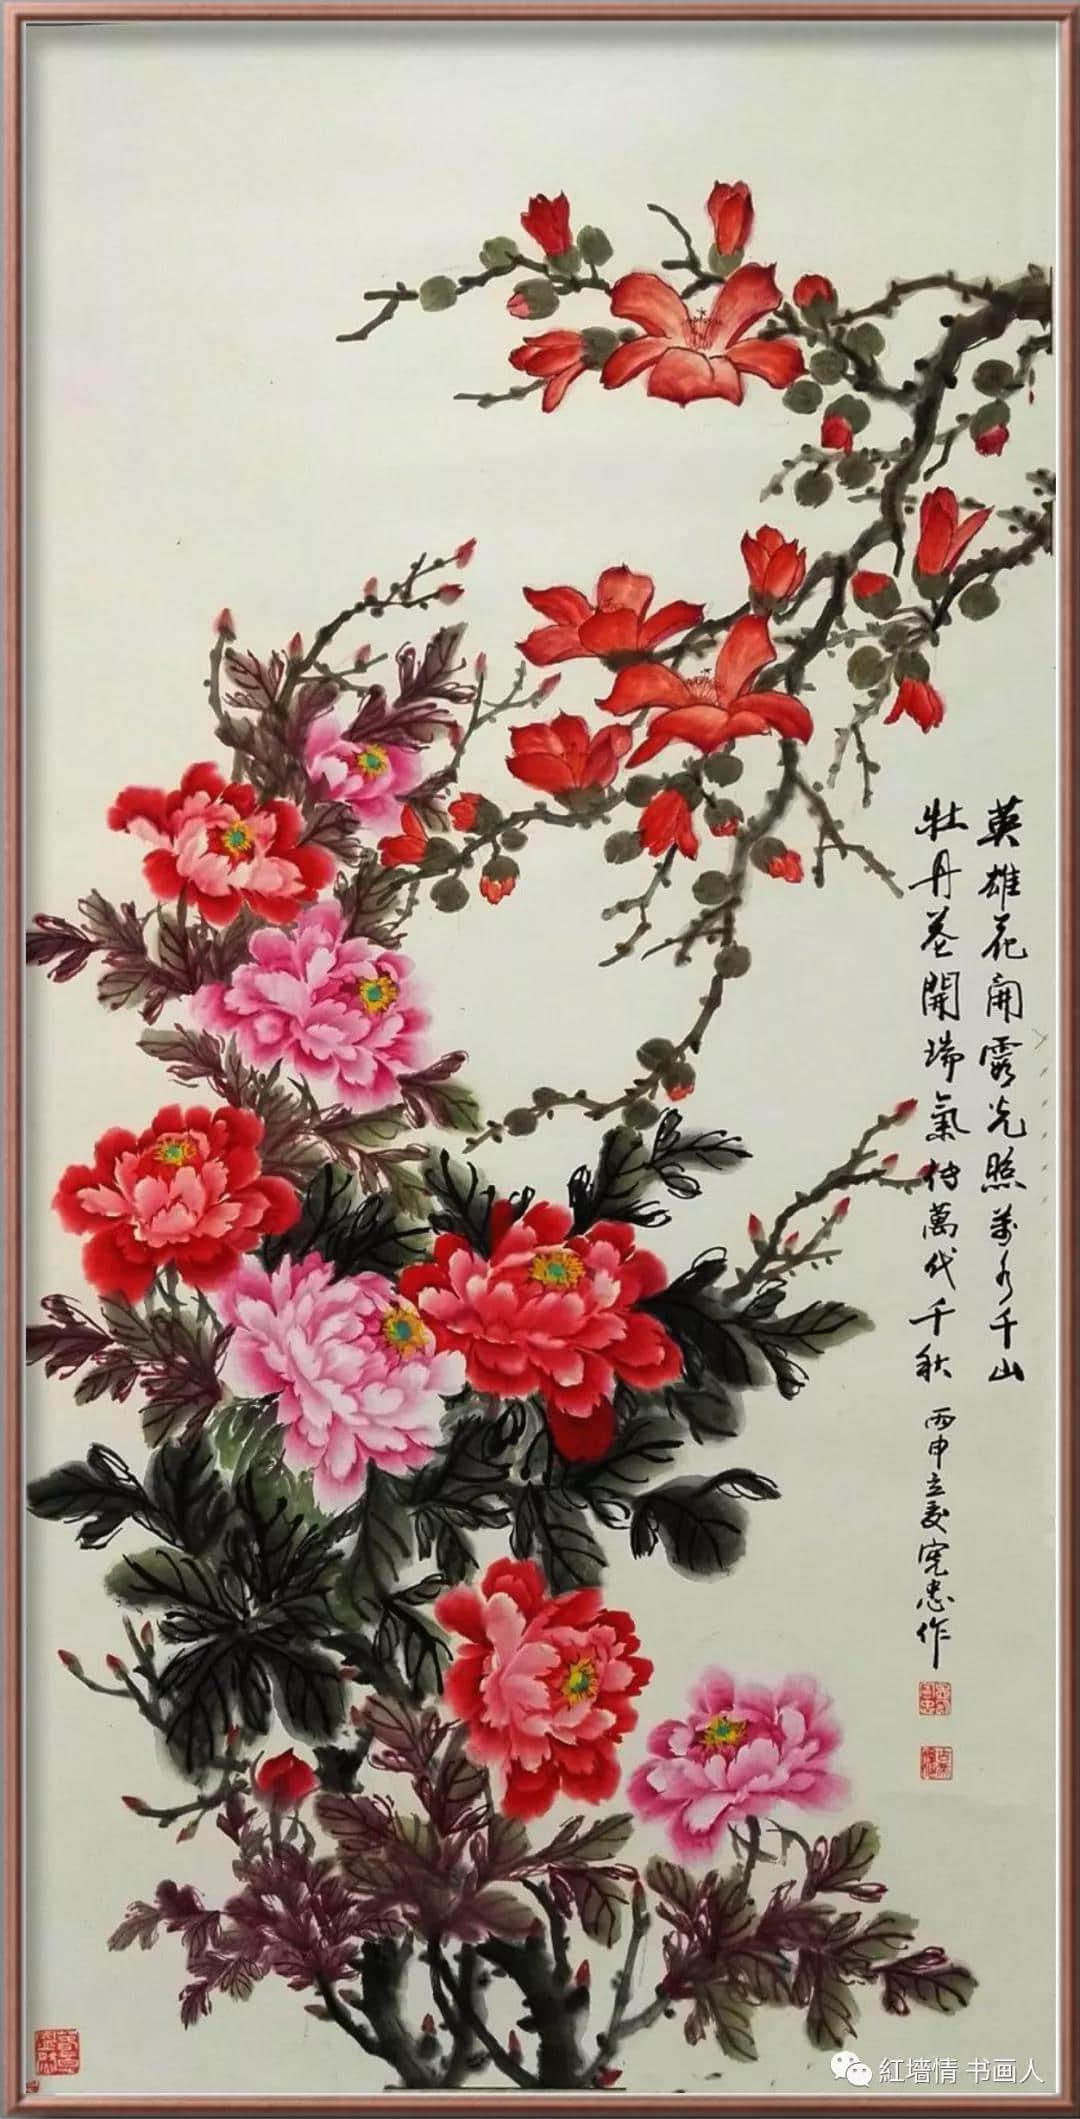 英雄花開霞光照萬水千山
牡丹花開瑞氣付萬代千秋
丙申立夏宪忠作
紅墙情 书画人